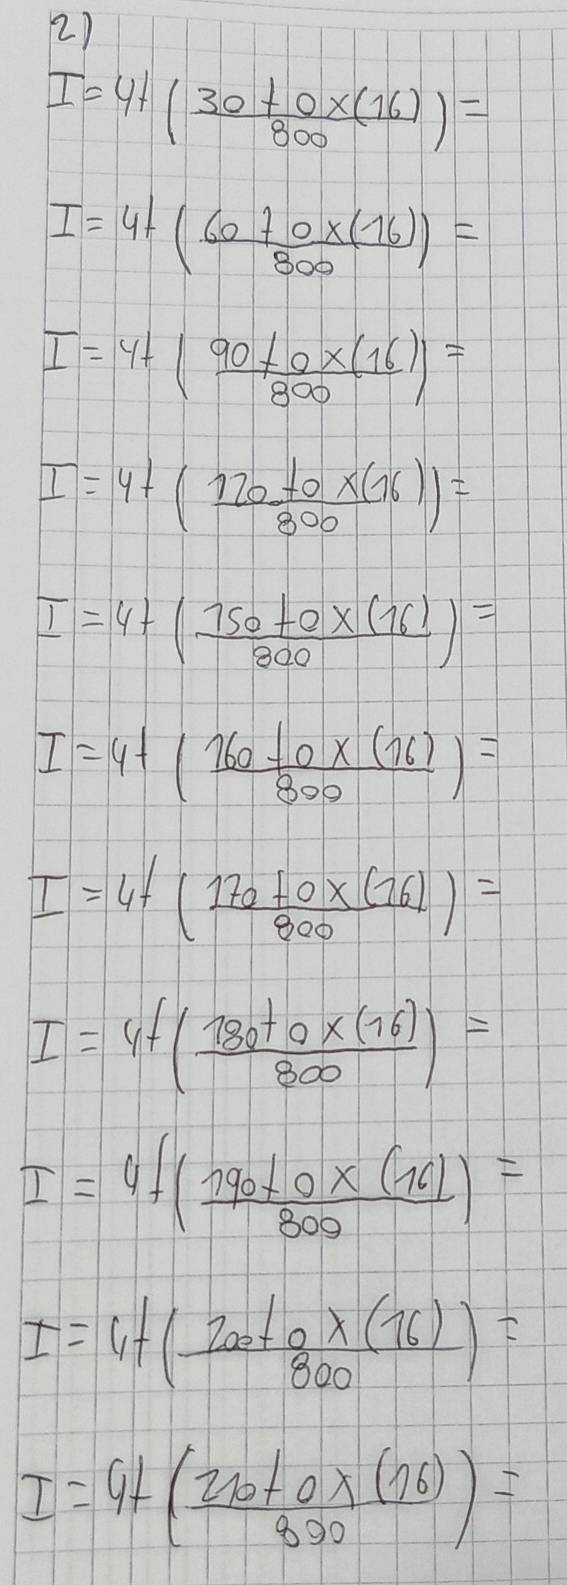 2)
I = 4+ ( 30+0x(16) ) =
800
I = 4+ ( 60+0x(16) ) =
800
I = 4+ ( 90+0x(16) ) =
800
I = 4+ ( 120+0x(16) ) =
800
I = 4+ ( 150+0x(16) ) =
800
I = 4+ ( 160+0x(16) ) =
800
I = 4+ ( 170+0x(16) ) =
800
I = 4+ ( 180+0x(16) ) =
800
I = 4+ ( 190+0x(16) ) =
800
I = 4+ ( 200+0x(16) ) =
800
I = 4+ ( 210+0x(16) ) =
800